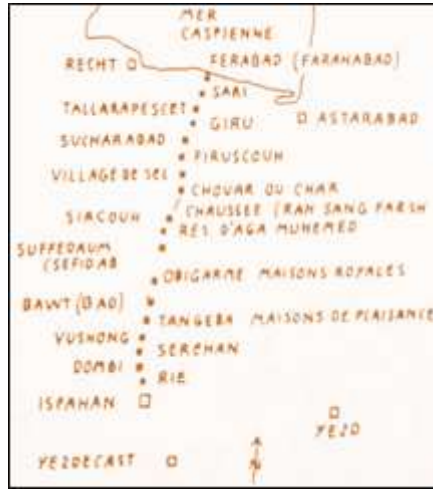 MER
CASPIENNE
FERABAD (FARAHABAD)
RECHT
SARI
TALLARAPESCET
GIRU
ASTARABAD
SUCHARABAD
PIRUSCOUH
VILLAGE DE SEL
CHOUAR OU CHAR
CHAUSSEE (RAH SANG FARSH
SIRCOUH
RES D'AGA MUHEMED
SUFFEDAUM
(SEFIDAB
OBIGARME MAISONS ROYALES
BAWT (BAD)
TANGEBA MAISONS DE PLAISANCE
VUSHONG
SERCHAN
DOMBI
RIE
ISPAHAN
YEZD
YEZDECAST
N